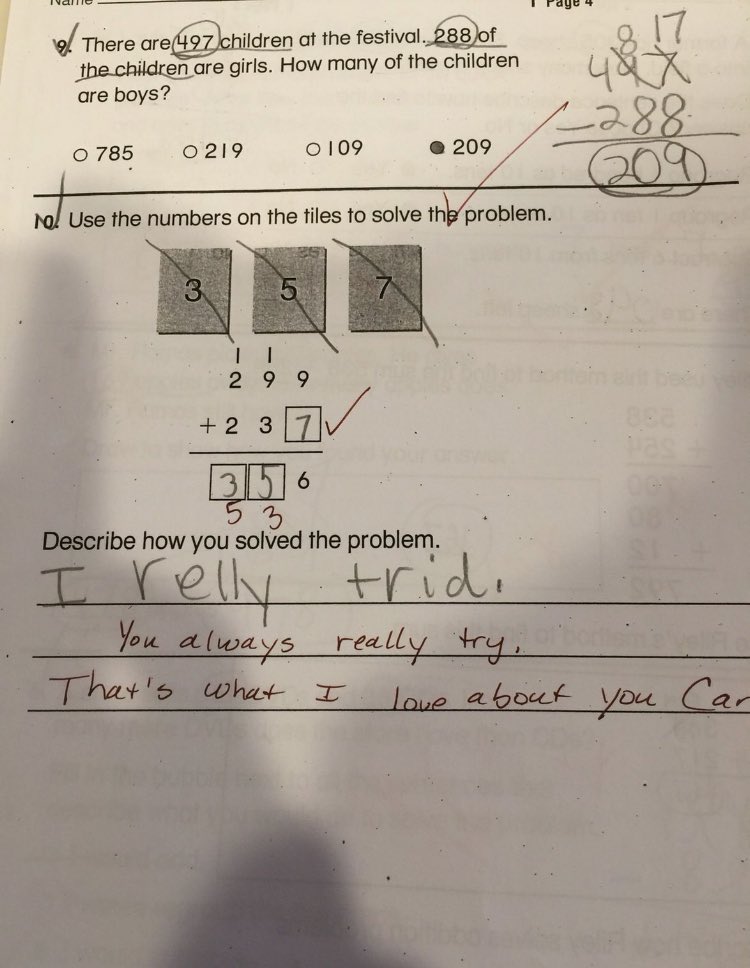 Name
1 Page 4
9. There are 497 children at the festival. 288 of
the children are girls. How many of the children
are boys?
785 219 109 209
8 17
497
-288
209
10. Use the numbers on the tiles to solve the problem.
3 5 7
1 1
2 9 9
+ 2 3 7
3 5 6
5 3
Describe how you solved the problem.
I relly trid.
You always really try.
That's what I love about you Car